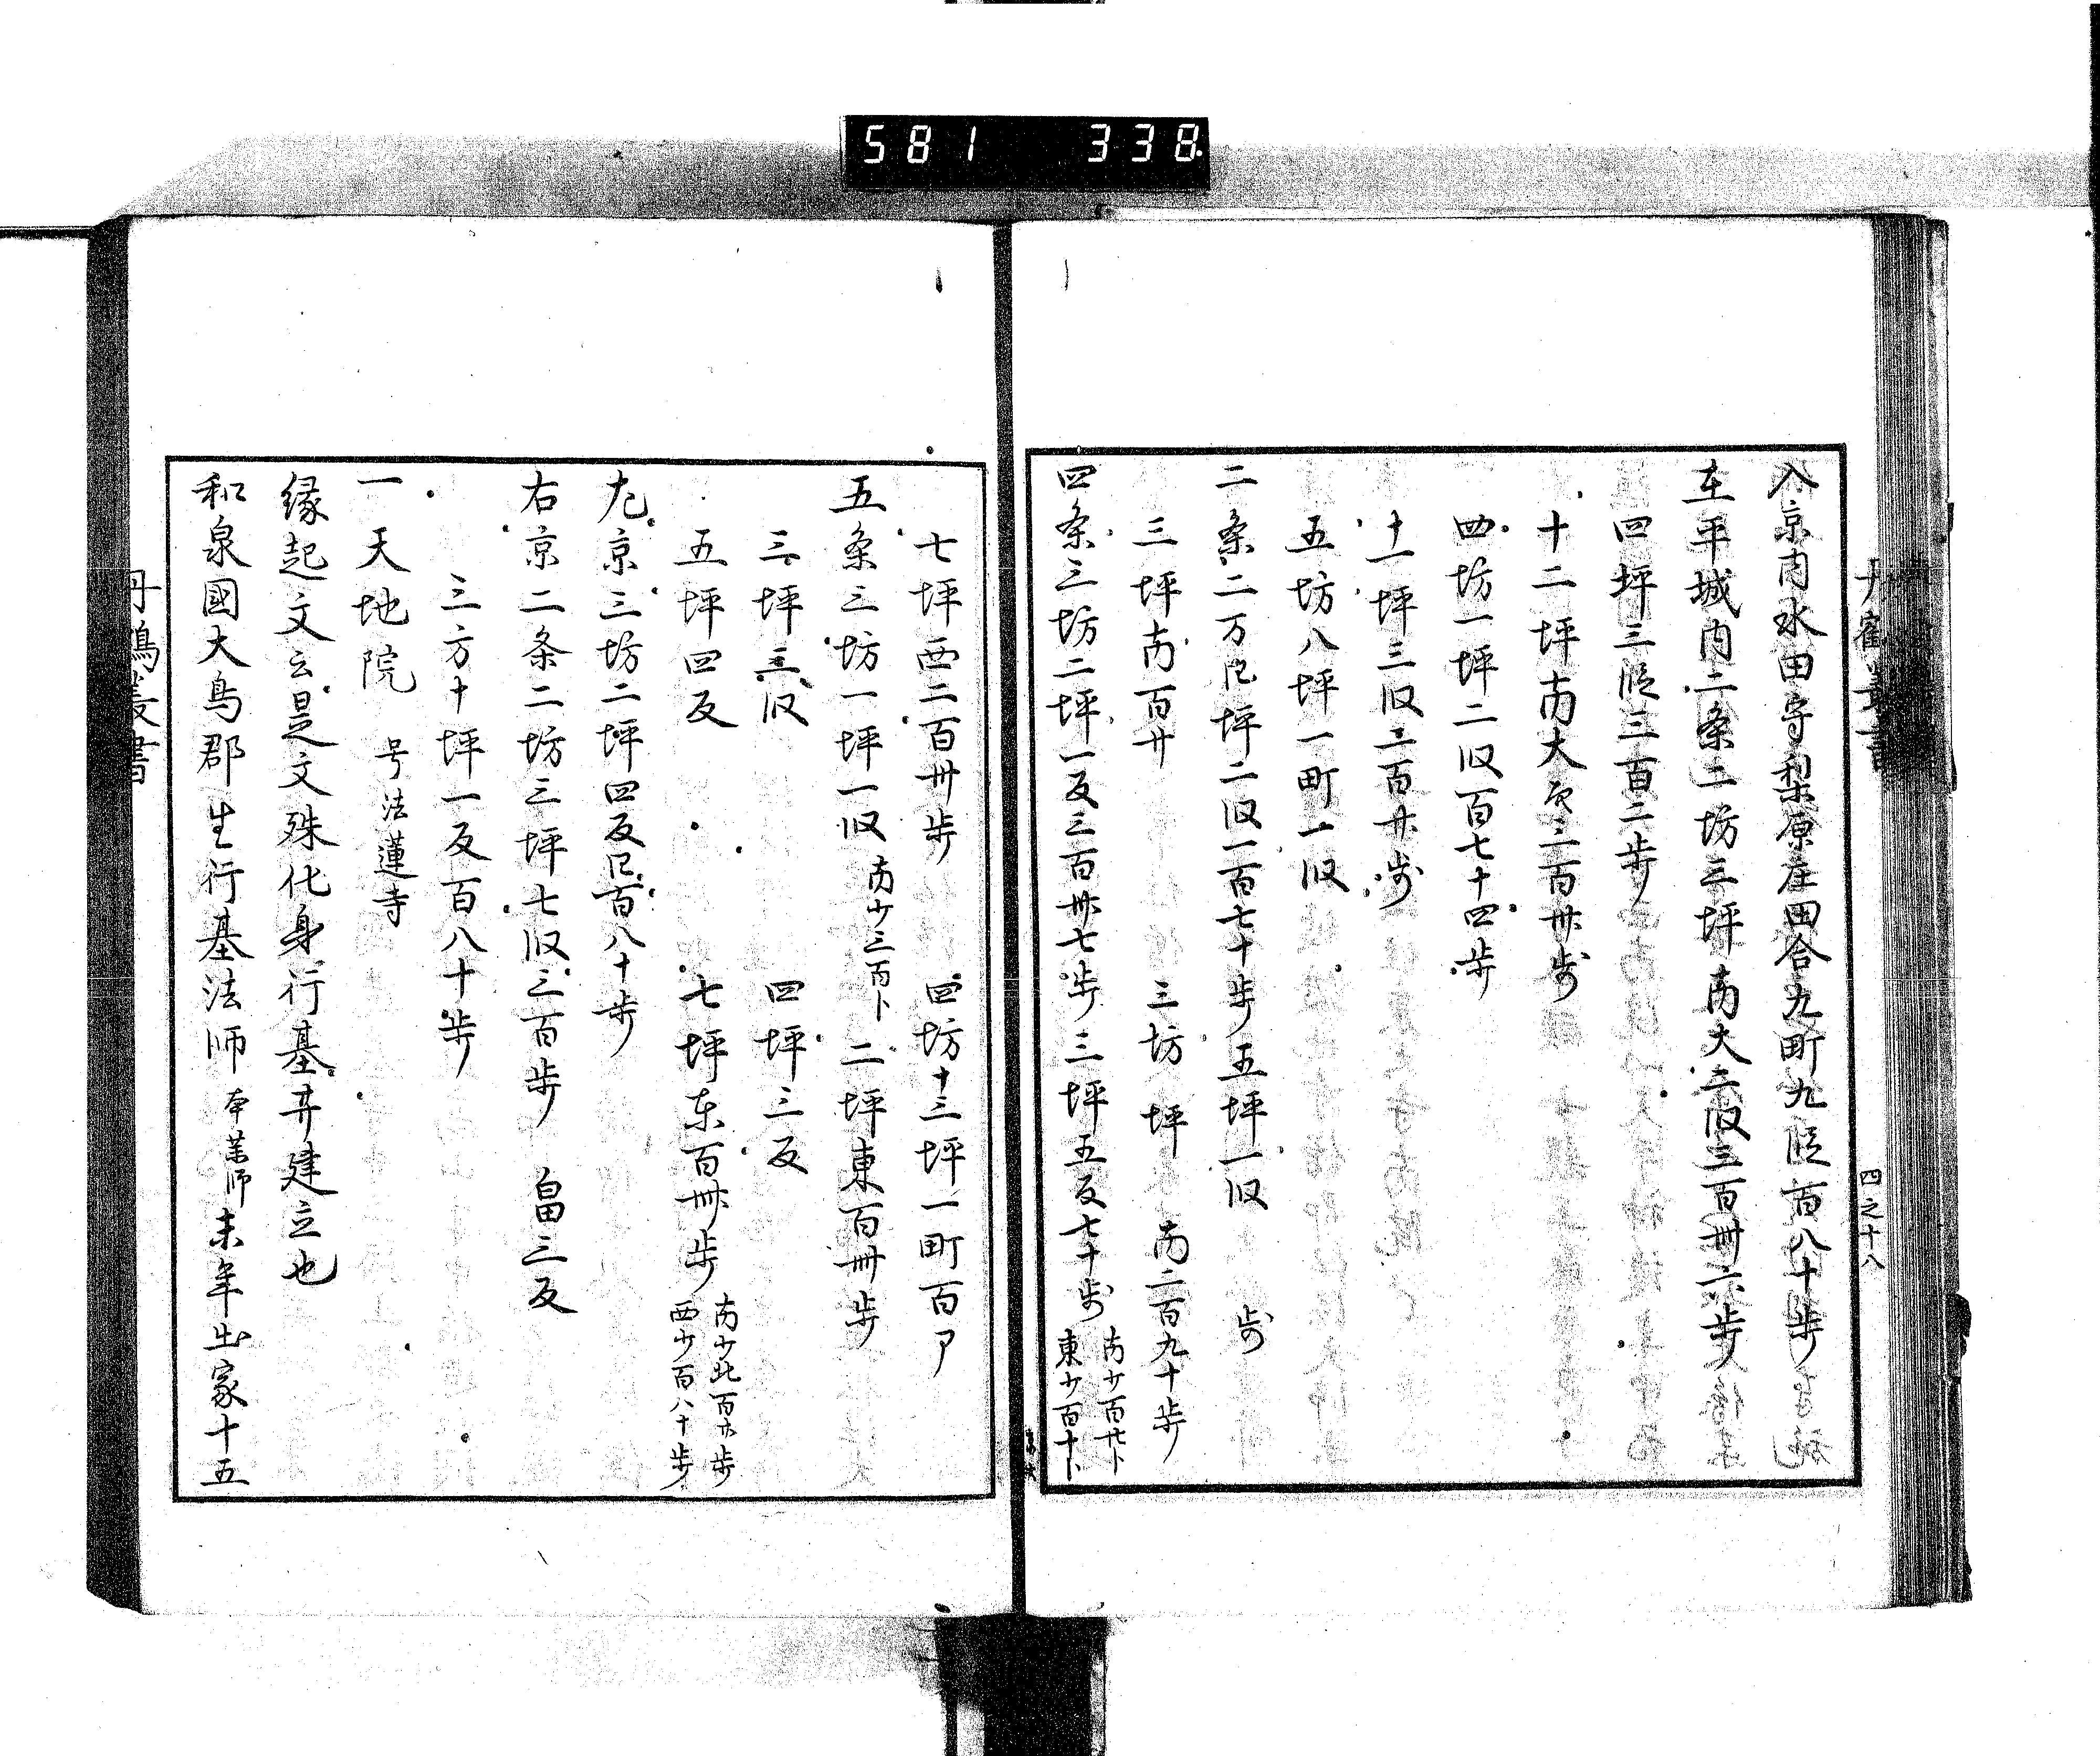 581 338
丹鶴叢書
四之十八
入京南水田寺梨原庄田合九町九段百八十歩
左平城内二条二坊三坪南大二段三百卅六歩
四坪三段三百二歩
十二坪南大 三百卅歩
四坊一坪二段百七十四歩
十一坪三段三百廿歩
五坊八坪一町一段
二条二 坪二段一百七十歩五坪一段 歩
三坪南百廿 三坊 坪 南二百九十歩
四条三坊二坪一反三百卅七歩三坪五反七十歩
南少百廿卜
東少百十卜
七坪西二百卅歩 四坊十三坪一町百卩
五条三坊一坪一段南少三百卜二坪東百卅歩
三坪三段 四坪三反
五坪四反 七坪東百卅歩
南少北百廿歩
西少百八十歩
九京三坊二坪四反 百八十歩
右京二条二坊三坪七段三百歩 畠三反
三方十坪一反百八十歩
一天地院 号法蓮寺
縁起文云是文殊化身行基井建立也
和泉國大鳥郡生行基法師 本薬師 未年出家十五
丹鶴叢書